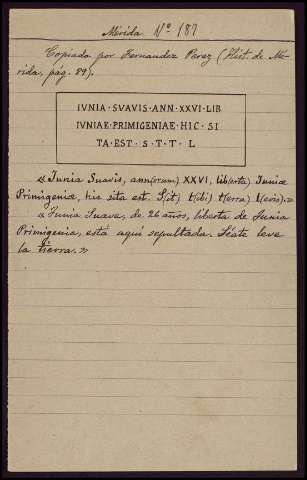 Mérida. Nº 187
Copiada por Fernandez Perez (Hist. de Mé-
rida, pág. 29).
IVNIA · SVAVIS · ANN · XXVI · LIB
IVNIAE · PRIMIGENIAE · HIC · SI
TA · EST · S · T · T · L
«Iunia Suavis, ann(orum) XXVI, lib(erta) Iuniæ
Primigeniæ, hic sita est. S(it) t(ibi) t(erra) l(evis).»
«Junia Suave, de 26 años, liberta de Junia
Primigenia, está aquí sepultada. Séate leve
la tierra.»